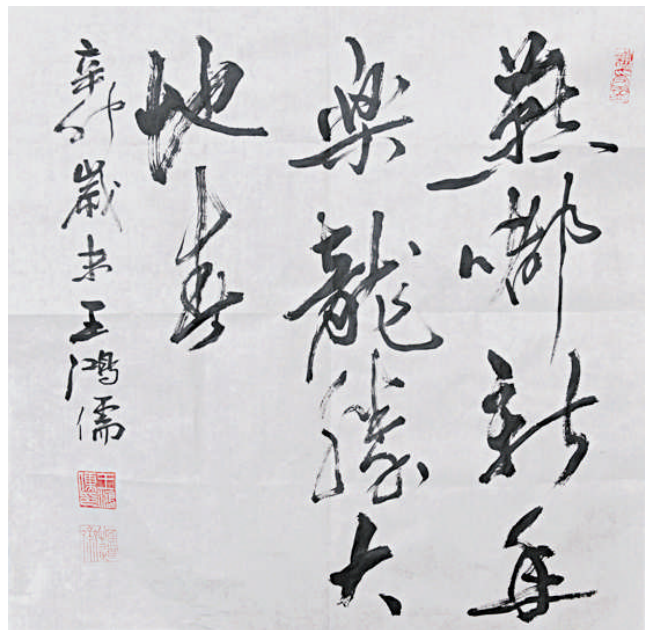 燕啣新年
楽龍騰大
地春
辛卯歲末王鴻儒